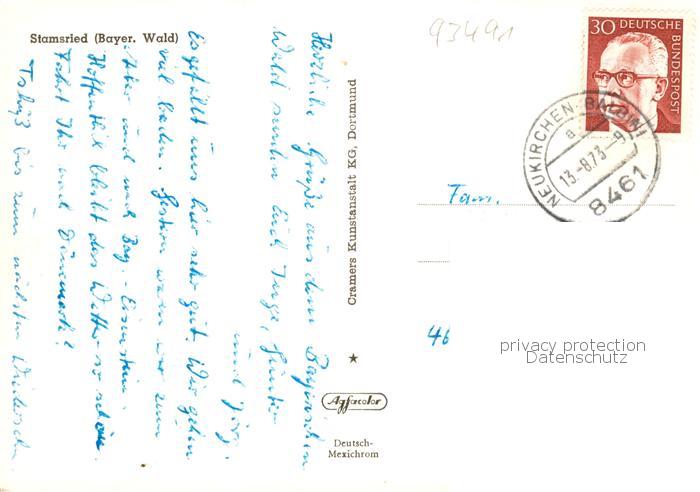 Stamsried (Bayer. Wald)
93491
Herzliche Grüße aus dem Bayerischen
Wald senden Euch Inge, Günter
und Jörg.
Es gefällt uns hier sehr gut. Wir gehen
viel baden. Gestern waren wir zum
und nach Bay.-Eisenstein.
Hoffentlich bleibt das Wetter so schön.
Fahrt Ihr nach Dänemark?
Tschüß bis zum nächsten Wiedersehen
Cramers Kunstanstalt KG, Dortmund
Agfacolor
Deutsch-
Mexichrom
30 DEUTSCHE
BUNDESPOST
NEUKIRCHEN-BALBINI
a
13.-8.73-9
8461
Fam.
46
privacy protection
Datenschutz